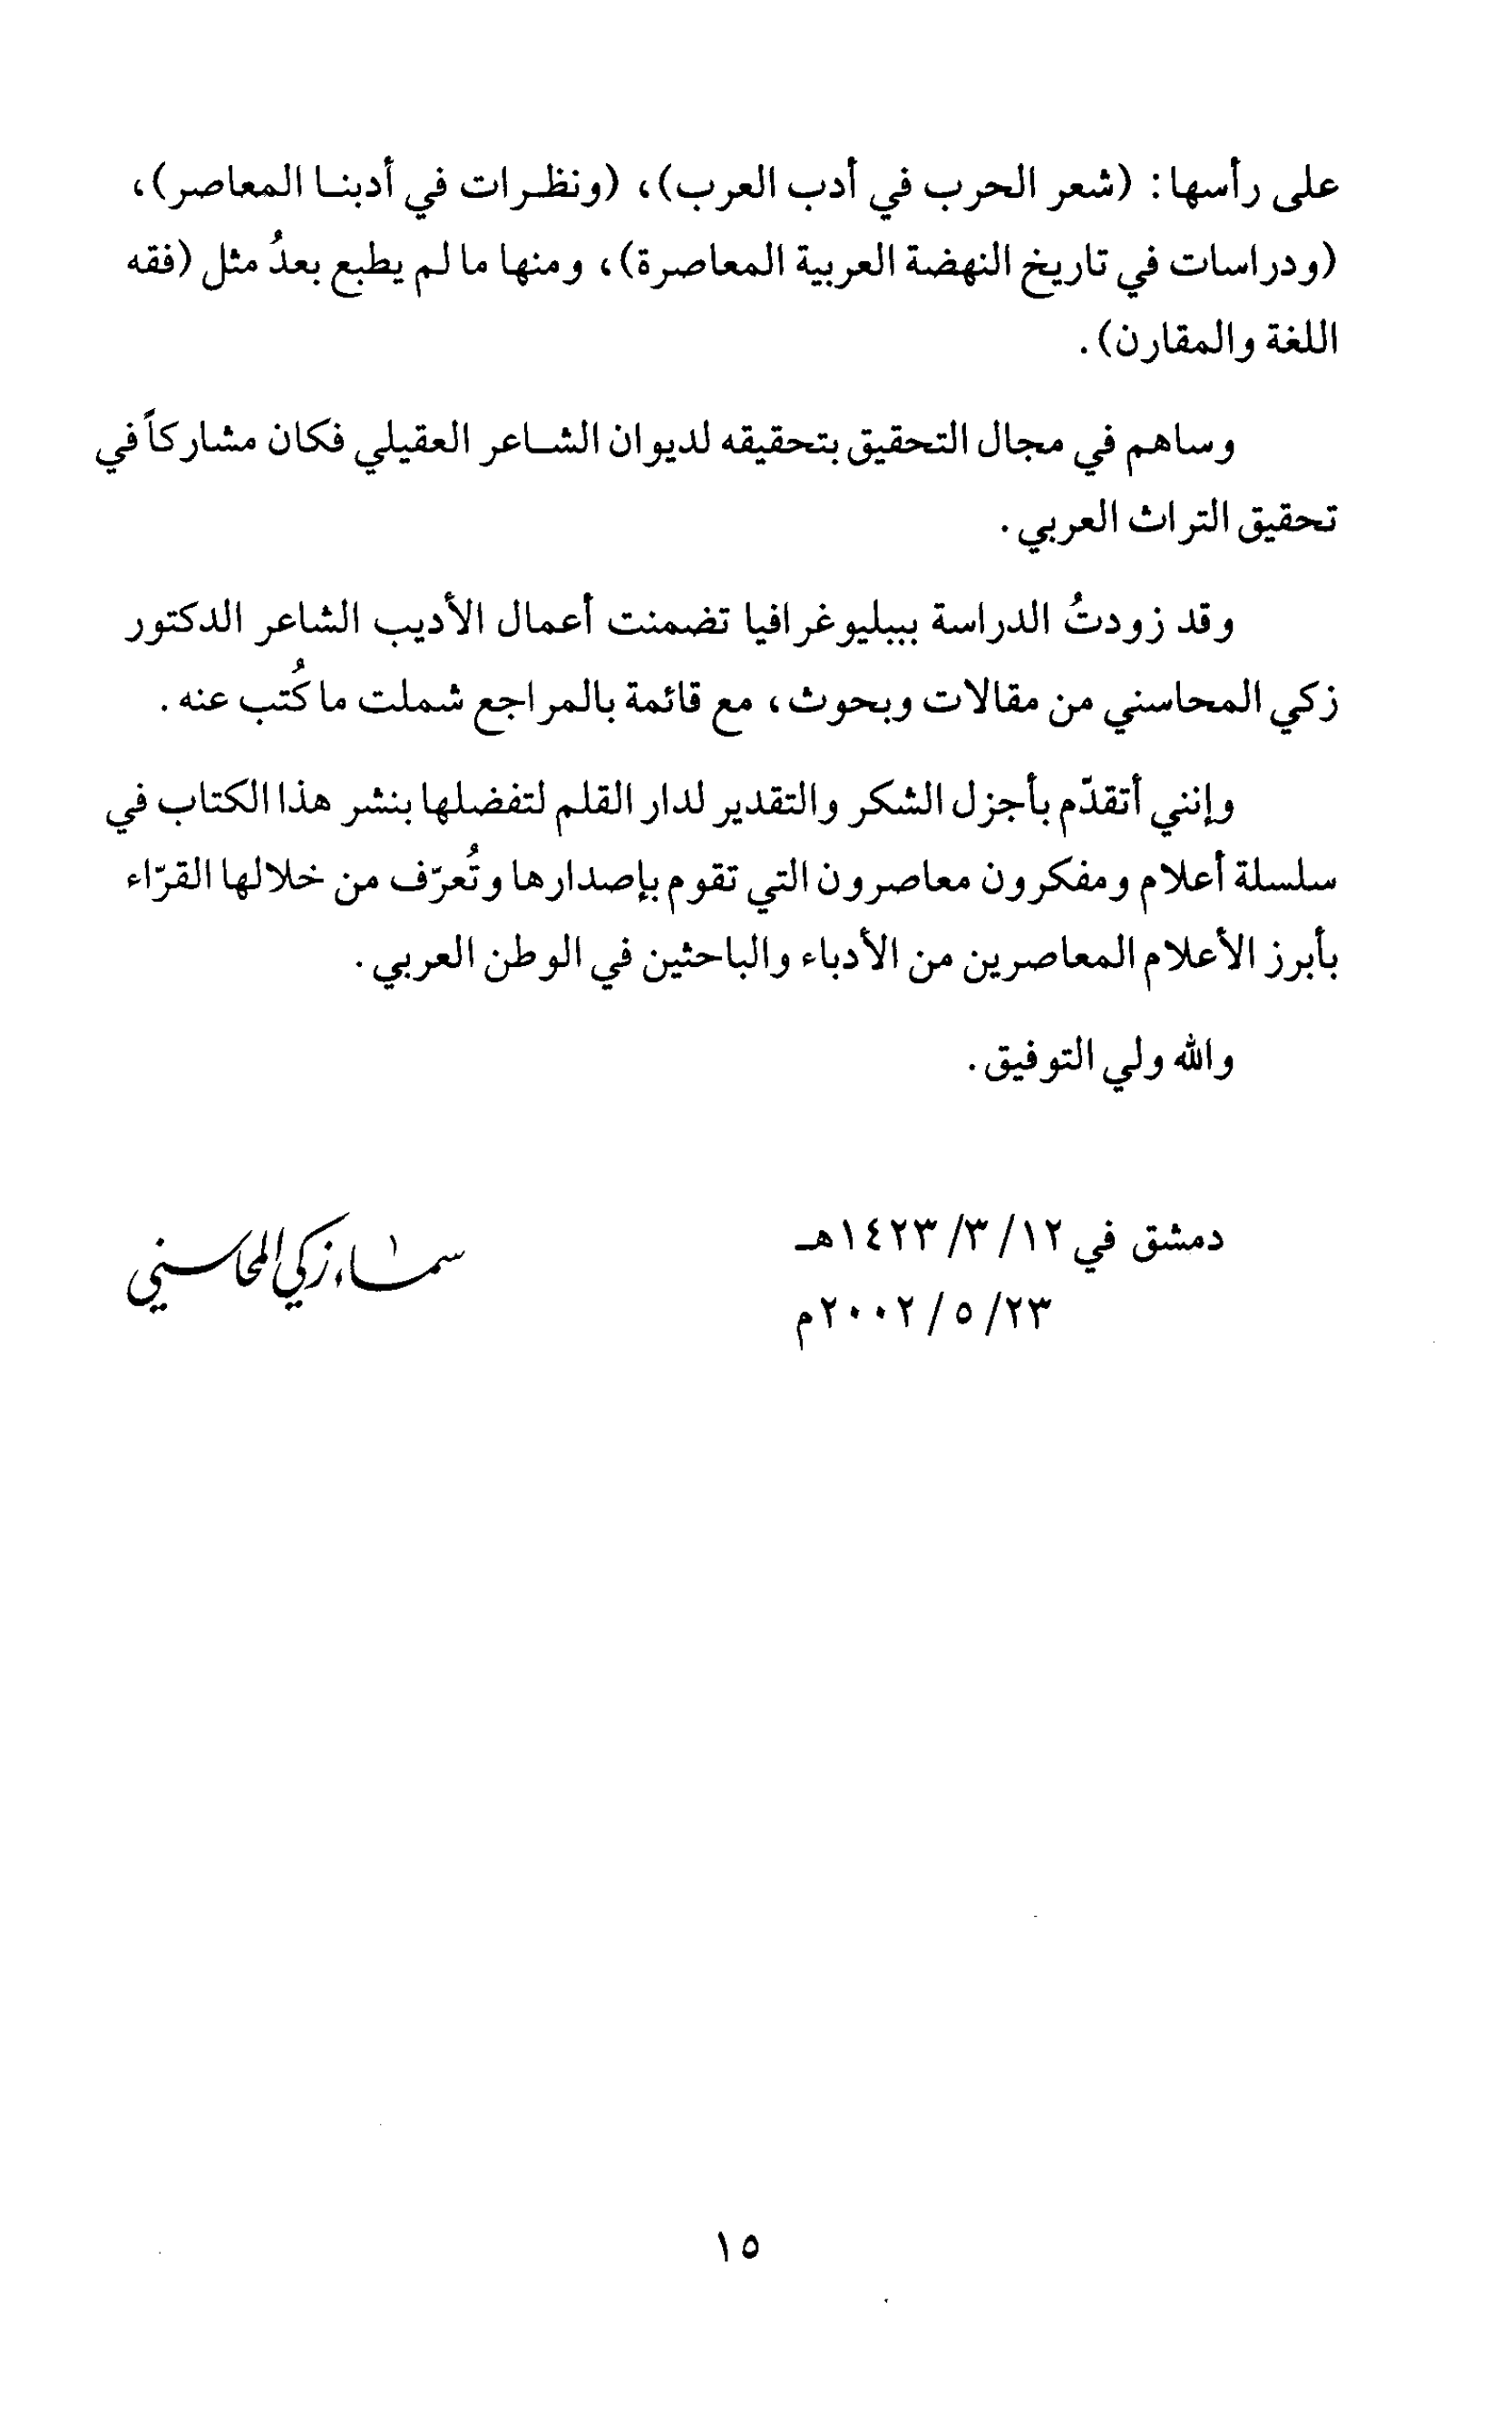 على رأسها: (شعر الحرب في أدب العرب)، (ونظرات في أدبنا المعاصر)،
(ودراسات في تاريخ النهضة العربية المعاصرة)، ومنها ما لم يطبع بعدُ مثل (فقه
اللغة والمقارن).
وساهم في مجال التحقيق بتحقيقه لديوان الشاعر العقيلي فكان مشاركاً في
تحقيق التراث العربي.
وقد زودتُ الدراسة ببليوغرافيا تضمنت أعمال الأديب الشاعر الدكتور
زكي المحاسني من مقالات وبحوث، مع قائمة بالمراجع شملت ما كُتب عنه.
وإنني أتقدّم بأجزل الشكر والتقدير لدار القلم لتفضلها بنشر هذا الكتاب في
سلسلة أعلام ومفكرون معاصرون التي تقوم بإصدارها وتُعرّف من خلالها القرّاء
بأبرز الأعلام المعاصرين من الأدباء والباحثين في الوطن العربي.
والله ولي التوفيق.
دمشق في ١٢/ ٣/ ١٤٢٣هـ
سماء زكي المحاسني
٢٣/ ٥/ ٢٠٠٢م
١٥